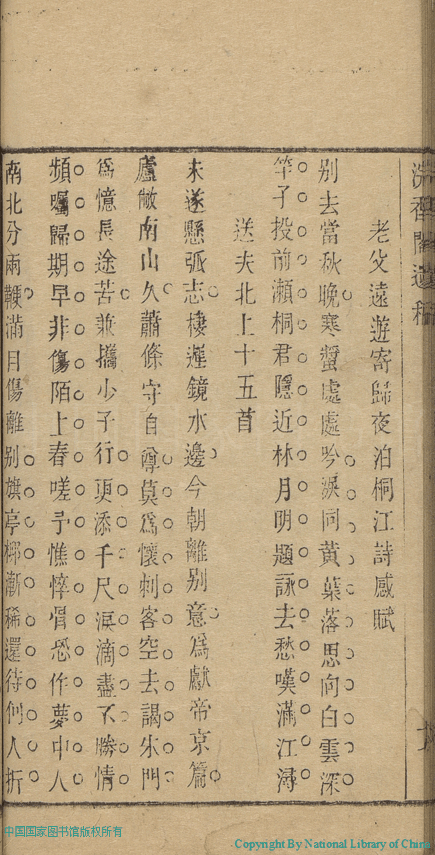 老父遠遊寄歸夜泊桐江詩感賦
別去當秋晚寒螿處處吟淚同黃葉落思向白雲深
竿子投前瀨桐君隱近林月明題詠去愁嘆滿江潯
送夫北上十五首
未遂懸弧志棲遲鏡水邊今朝離別意爲獻帝京篇
廬敝南山久蕭條守自尊莫爲懷刺客空去謁朱門
爲憶長途苦兼攜少子行更添千尺淚滴盡不勝情
頻囑歸期早非傷陌上春嗟予憔悴骨恐作夢中人
南北分兩轅滿目傷離別旗亭柳漸稀還待何人折
中国国家图书馆版权所有
Copyright By National Library of China